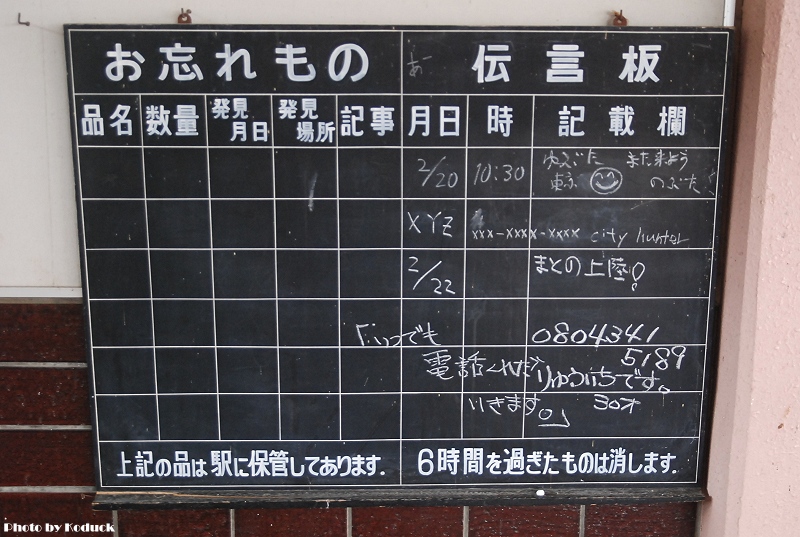 お忘れもの 伝言板
品名 数量 発見月日 発見場所 記事 月日 時 記載欄
2/20 10:30 ゆみぶた また来よう
東京 のぶた!
XYZ xxx-xxxx-xxxx city hunter
2/22 まとの上陸!
「いつでも 0804341
5189
電話くれた りゅういちです。
いきます。」 30才
上記の品は駅に保管してあります. 6時間を過ぎたものは消します.
Photo by Koduck